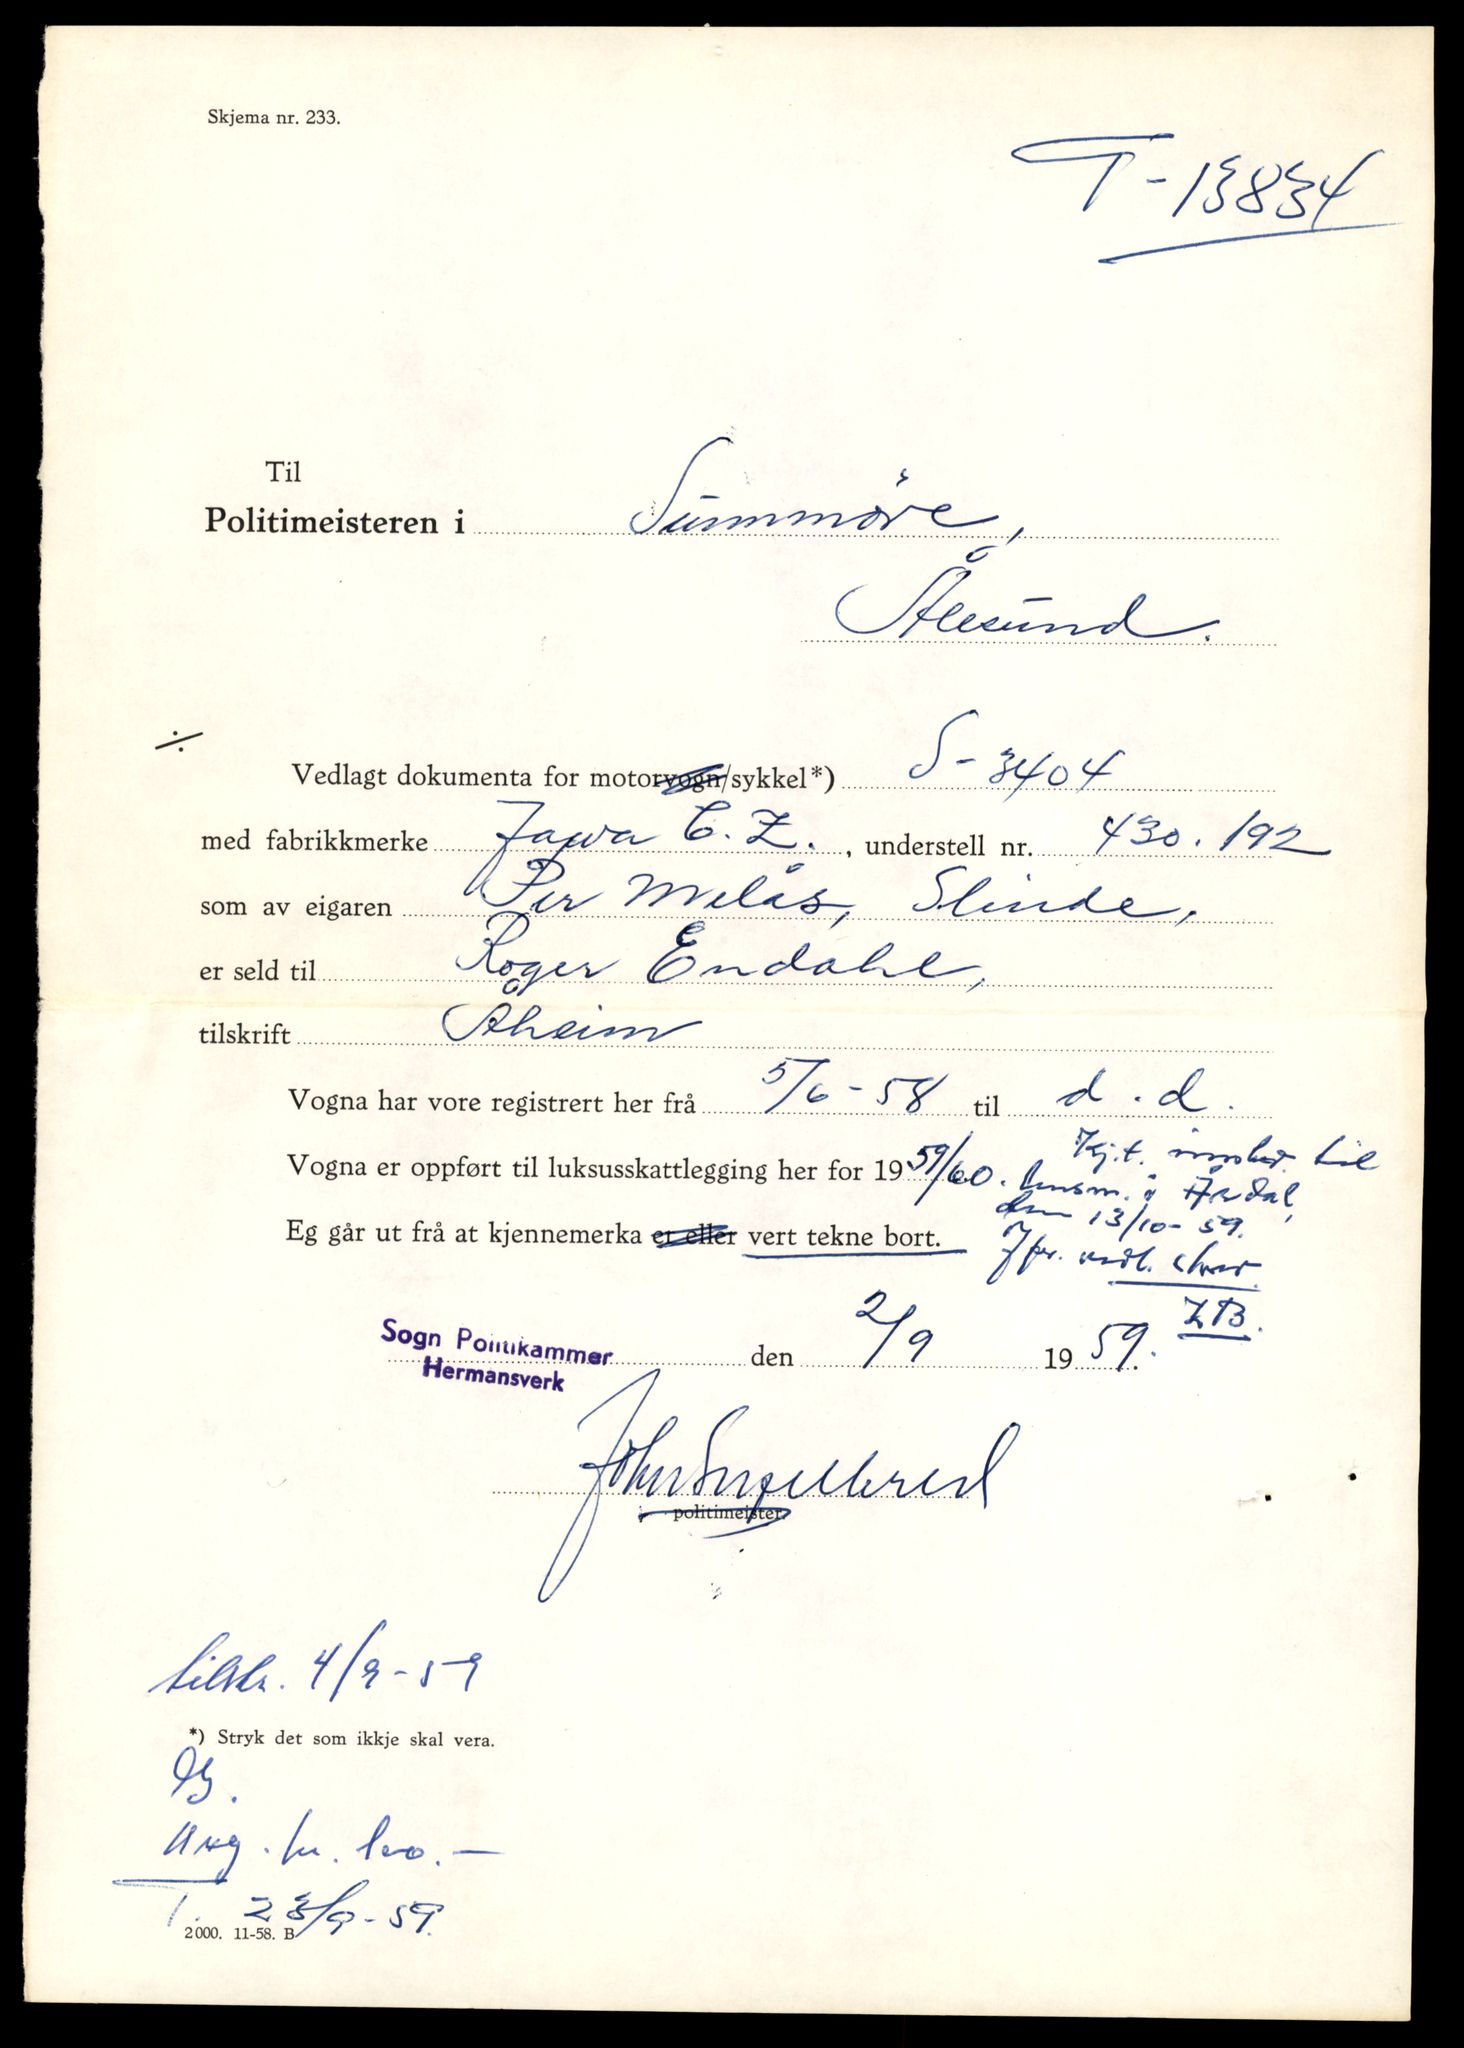 Skjema nr. 233.
T-13834
Til
Politimeisteren i Sunnmöre,
Ålesund.
÷
Vedlagt dokumenta for motorvogn/sykkel*) S-3404
med fabrikkmerke Jawa C.Z., understell nr. 430.192
som av eigaren Per Melås, Slinde,
er seld til Roger Endahl,
tilskrift Åheim
Vogna har vore registrert her frå 5/6-58 til d.d.
Vogna er oppført til luksusskattlegging her for 1959/60.
Kjt. innlev. til
lensm. i Årdal,
den 13/10-59.
Jfr. vedl. skriv.
Eg går ut frå at kjennemerka er eller vert tekne bort.
Sogn Politikammer
Hermansverk
den 2/9 1959.
politimeister.
tilskr. 4/9-59
*) Stryk det som ikkje skal vera.
23/9-59.
2000. 11-58. B